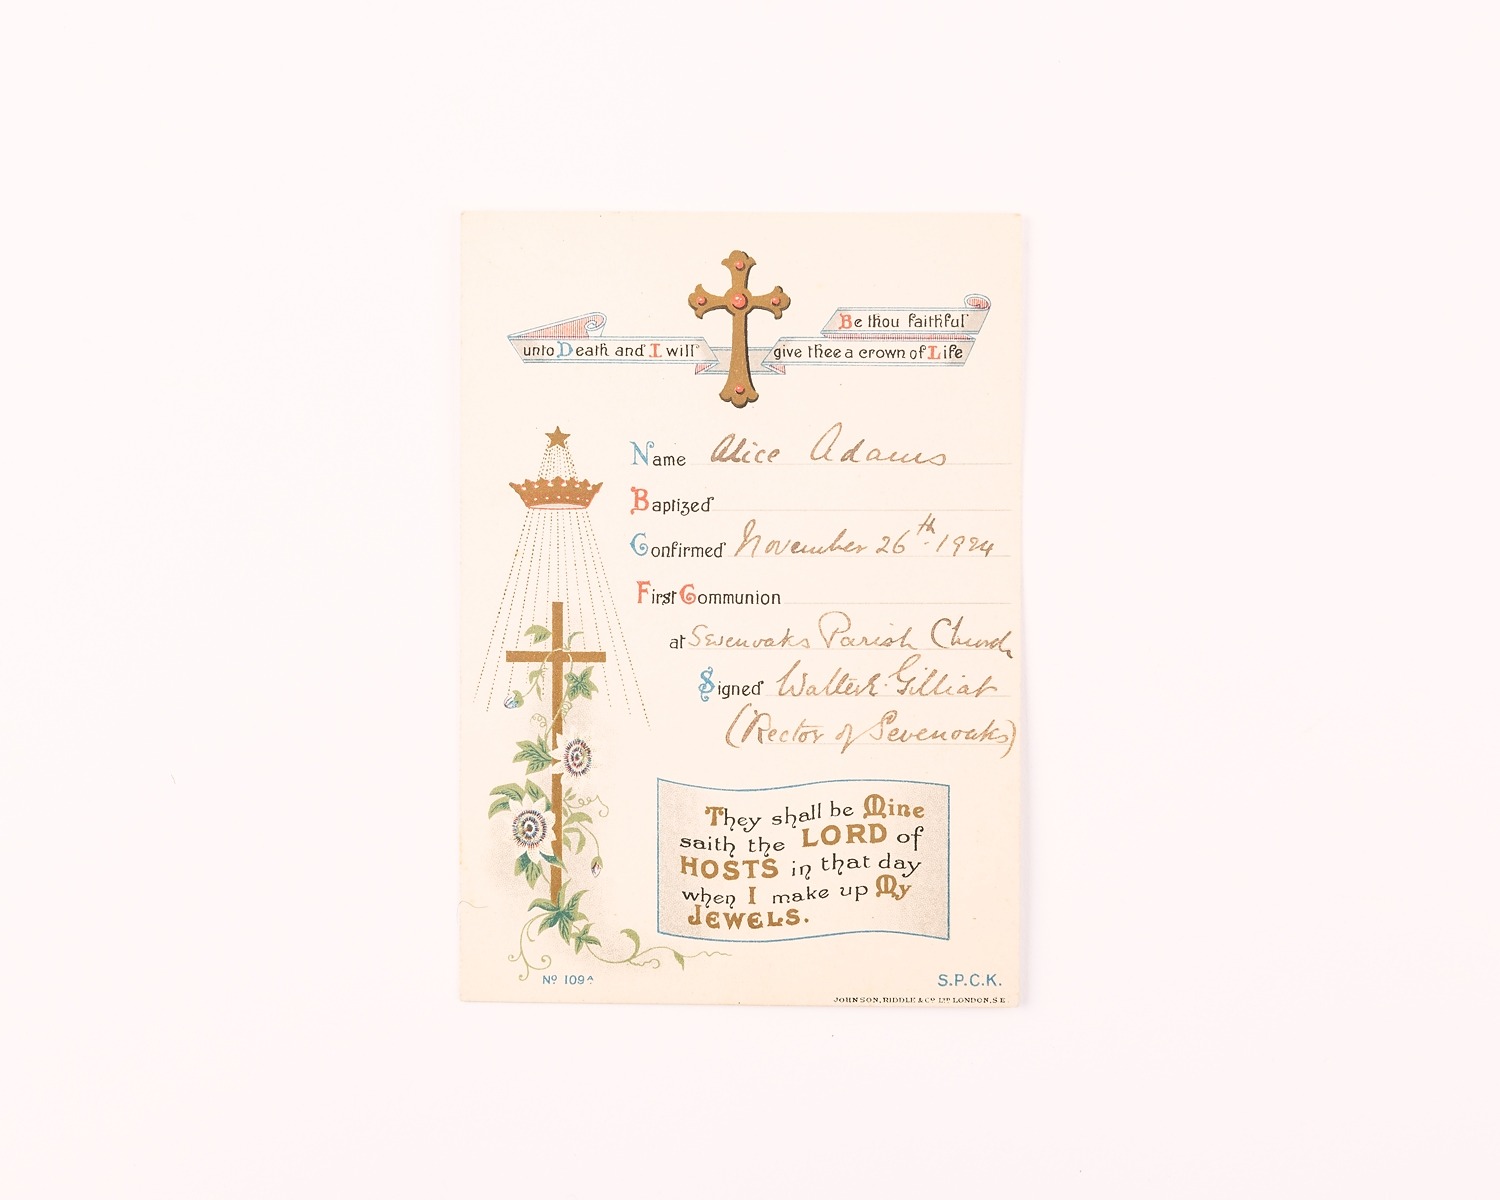 Be thou faithful
unto Death and I will give thee a crown of Life
Name Alice Adams
Baptized
Confirmed November 26th 1924
First Communion
at Sevenoaks Parish Church
Signed Walter E. Gilliat
(Rector of Sevenoaks)
They shall be Mine
saith the LORD of
HOSTS in that day
when I make up My
JEWELS.
No 109A
S.P.C.K.
JOHNSON, RIDDLE & Co LTD LONDON, S.E.